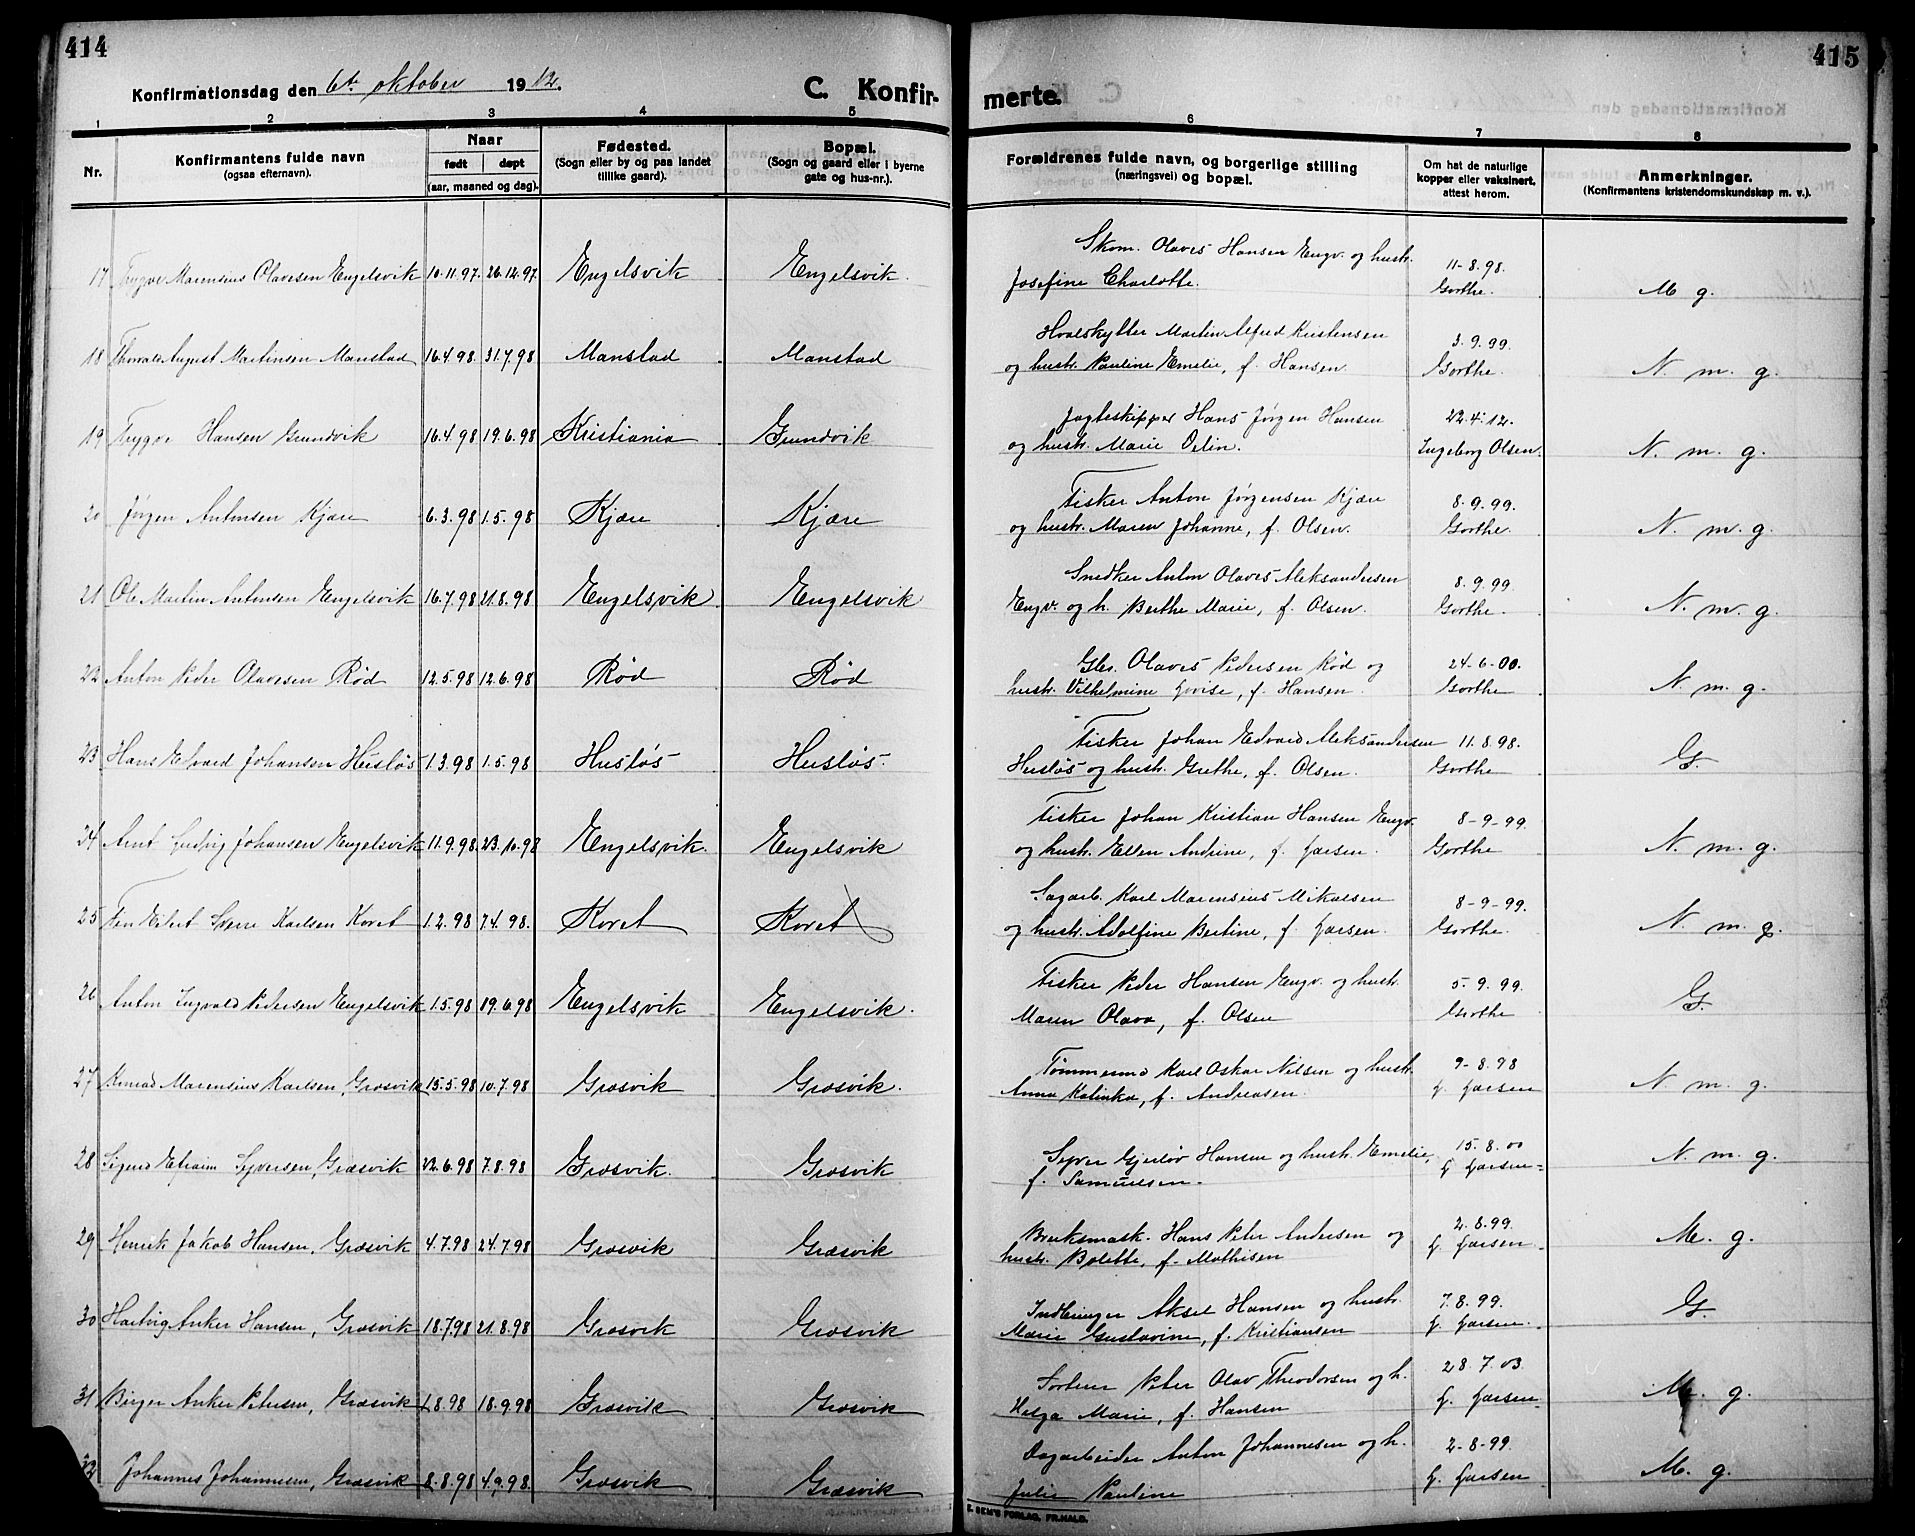 414
415
Konfirmationsdag den 6te oktober 1912.
C. Konfir-
merte.
1 2 3 4 5 6 7 8
Nr.
Konfirmantens fulde navn
(ogsaa efternavn).
Naar
født døpt
(aar, maaned og dag).
Fødested.
(Sogn eller by og paa landet
tillike gaard).
Bopæl.
(Sogn og gaard eller i byerne
gate og hus-nr.).
Forældrenes fulde navn, og borgerlige stilling
(næringsvei) og bopæl.
Om hat de naturlige
kopper eller vaksinert,
attest herom.
Anmerkninger.
(Konfirmantens kristendomskundskap m. v.).
17 Trygve Marensius Olavesen Engelsvik 10.11.97. 26.12.97. Engelsvik Engelsvik.
Skom. Olaves Hansen Engv. og hustr. 11-8.98.
Josefine Charlotte. Gorthe. M g.
18 Thorvald August Martinsen Manstad 16.4.98 31.7.98 Manstad Manstad
Hvalskytter Martin Alfred Kristensen 3.9.99.
og hustr. Pauline Emelie, f. Hansen. Gorthe. N. m. g.
19 Trygve Hansen Grundvik 16.4.98 19.6.98 Kristiania Grundvik
Jagteskipper Hans Jørgen Hansen 22.4.12.
og hustr. Marie Oelin. Ingeborg Olsen. N. m. g.
20 Jørgen Antonsen Kjære 6.3.98 1.5.98 Kjære Kjære
Fisker Anton Jørgensen Kjære 8.9.99.
og hustr. Maren Johanne, f. Olsen. Gorthe. N. m. g.
21 Ole Martin Antonsen Engelsvik 16.7.98 21.8.98 Engelsvik Engelsvik
Snedker Anton Olaves Aleksandersen 8.9.99.
Engv. og h. Berthe Marie, f. Olsen. Gorthe. N. m. g.
22 Anton Peder Olavesen Rød 12.5.98 12.6.98 Rød Rød
Gbr. Olaves Pedersen Rød og 24-6-00.
hustr. Vilhelmine Lovise, f. Hansen. Gorthe N. m. g.
23 Hans Edvard Johansen Husløs 1.3.98 1.5.98 Husløs Husløs.
Fisker Johan Edvard Aleksandersen 11.8.98.
Husløs og hustr. Grethe, f. Olsen. Gorthe G.
24 Arnt Ludvig Johansen Engelsvik 11.9.98 23.10.98 Engelsvik. Engelsvik
Fisker Johan Kristian Hansen Engv. 8-9-99.
og hustr. Ellen Andrine, f. Larsen. Gorthe N. m. g.
25 Finn Eilert Sverre Karlsen Koret 1.2.98 7.4.98. Koret Koret
Sagarb. Karl Marensius Mikalsen 8-9-99.
og hustr. Adolfine Bertine, f. Larsen. Gorthe. N. m. g.
26 Anton Ingvald Pedersen Engelsvik 1.5.98 19.6.98 Engelsvik Engelsvik.
Fisker Peder Hansen Engv. og hustr. 5.9.99.
Maren Olava, f. Olsen Gorthe G.
27 Konrad Marensius Karlsen, Græsvik 15.5.98 10.7.98 Græsvik Græsvik.
Tømmermd Karl Oskar Nilsen og hustr. 9-8.98
Anna Katinka, f. Andreasen. L. Larsen N. m. g.
28 Sigurd Efraim Syversen, Græsvik 22.6.98 7.8.98 Græsvik. Græsvik
Syver Gjerløv Hansen og hustr. Emelie, 15.8.00
f. Samuelsen. L. Larsen N. m. g.
29 Henrik Jakob Hansen, Græsvik 4.7.98 24.7.98 Græsvik Græsvik
Bruksmask. Hans Peter Andersen og 2.8.99.
hustr. Bolette, f. Mathisen L. Larsen M. g.
30 Hartvig Anker Hansen, Græsvik 18.7.98 21.8.98 Græsvik Græsvik
Indbringer Aksel Hansen og hustr. 7.8.99.
Marie Gustavine, f. Kristiansen L. Larsen. G.
31 Birger Anker Petersen, Græsvik 1.8.98 18.9.98 Græsvik Græsvik
Sorterer Peter Olav Theodorsen og h. 28.7.03
Helga Marie, f. Hansen L. Larsen M. g.
32 Johannes Johannesen, Græsvik 8.8.98 4.9.98. Græsvik Græsvik
Dagarbeider Anton Johannesen og h. 2-8-99.
Julie Pauline L. Larsen M. g.
E. SEM'S FORLAG, FR.HALD.